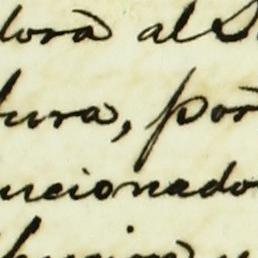 dora al S
dura, por
ucionado